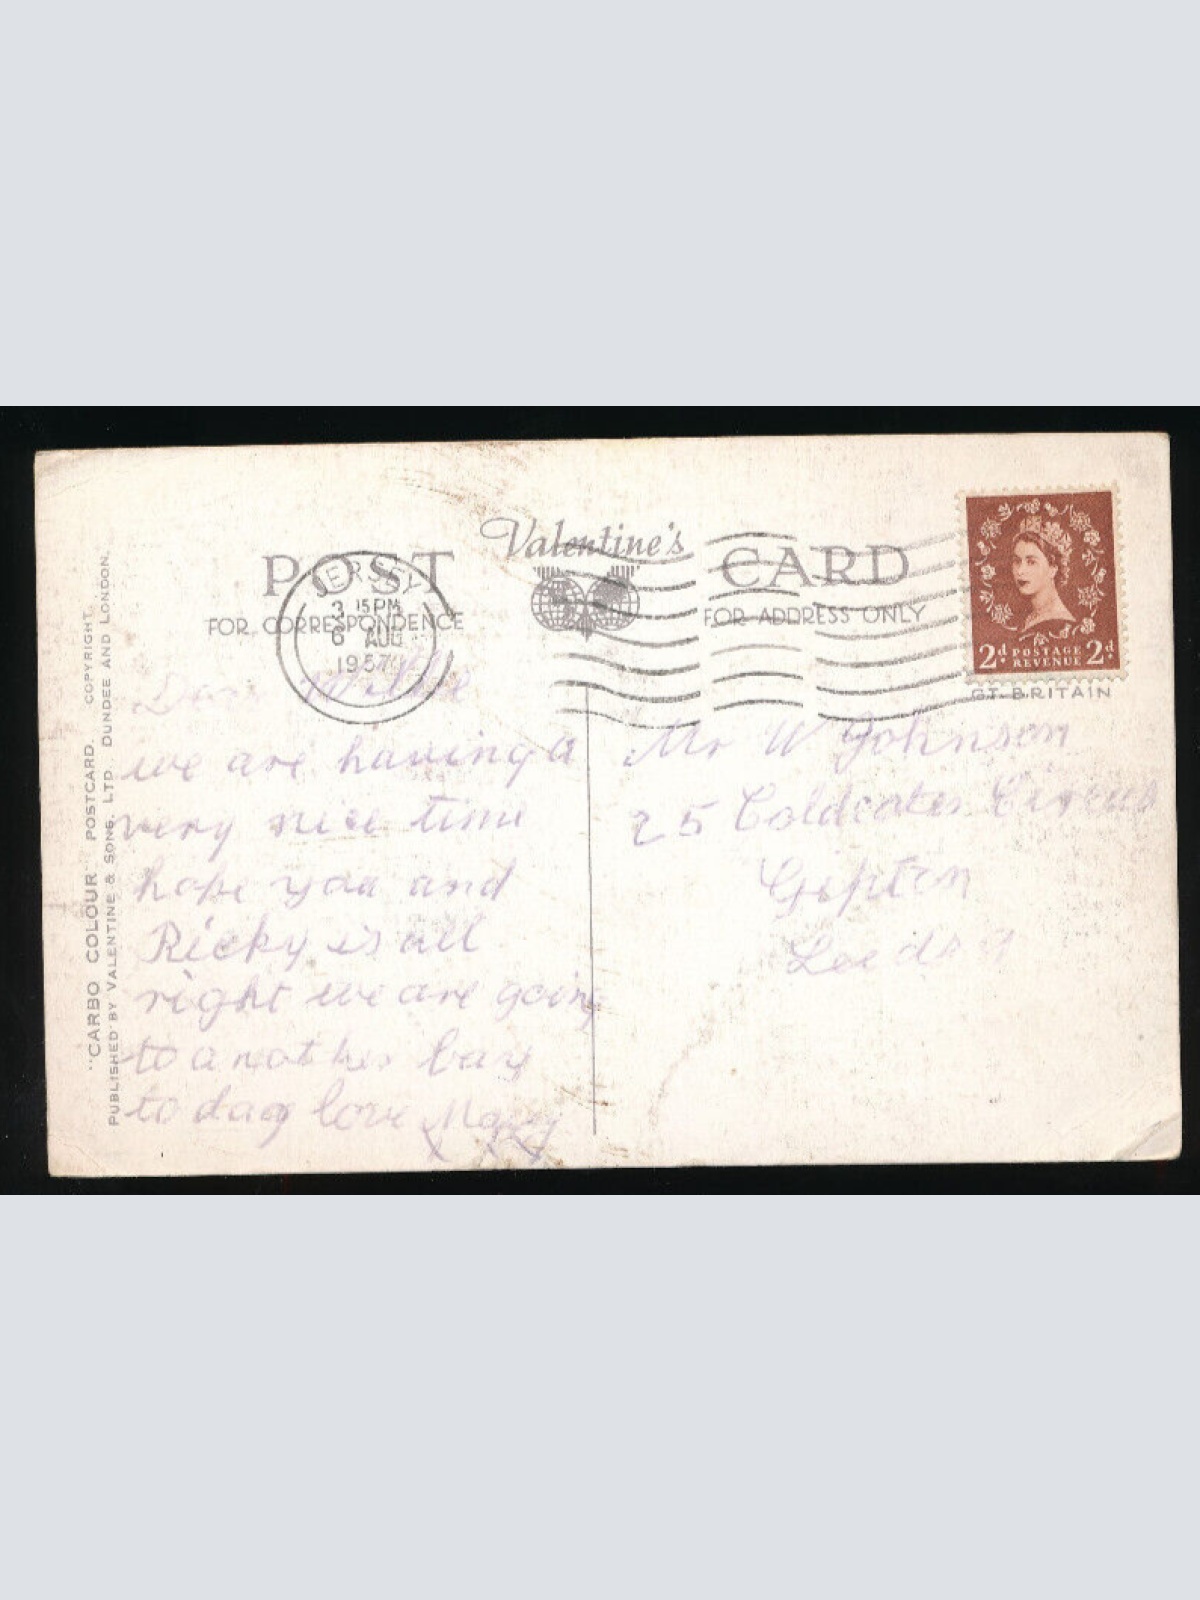 Valentine's
POST CARD
FOR CORRESPONDENCE
FOR ADDRESS ONLY
JERSEY
3 15 PM
6 AUG
1957
2d POSTAGE REVENUE 2d
GT. BRITAIN
"CARBO COLOUR" POSTCARD. COPYRIGHT.
PUBLISHED BY VALENTINE & SONS, LTD. DUNDEE AND LONDON.
Dear Willie
we are having a
very nice time
hope you and
Ricky is all
right we are going
to another bay
to day love Mary
x x x
Mr W Johnson
25 Coldcotes Circus
Gipton
Leeds 9